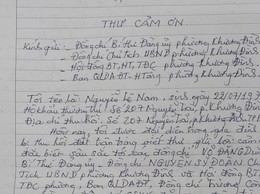 THƯ CẢM ƠN
Kính gửi: - Đồng chí Bí thư Đảng ủy phường Khương Đình
- Đồng chí Chủ tịch UBND phường Khương Đình
- Hội đồng BT, HT, TĐC phường Khương Đình
- Ban QLDA ĐT - HTầng phường Khương Đình
Tôi tên là Nguyễn Lê Nam, sinh ngày 22/07/197
Hộ khẩu thường trú: Số 207 Nguyễn Trãi, p. Khương Đình
Địa chỉ thu hồi: Số 207 Nguyễn Trãi, p. Khương Đình
Hôm nay, tôi được đại diện trong gia đình
bị thu hồi đất bản trang viết thư này lời cảm
đến biết sâu sắc tới đồng chí: VŨ ĐĂNG
Bí thư Đảng ủy - Đồng chí NGUYỄN SỸ ĐOÀN Ch
Tịch UBND phường Khương Đình và Hội đồng BT
TĐC phường, Ban QLDA ĐT, Đồng chí Trưởng Cô